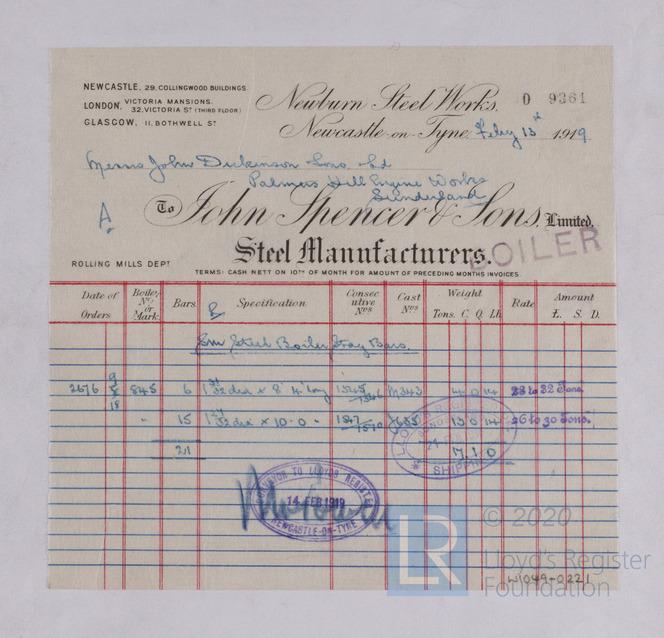 NEWCASTLE, 29, COLLINGWOOD BUILDINGS.
LONDON, VICTORIA MANSIONS,
32, VICTORIA ST (THIRD FLOOR)
GLASGOW, 11, BOTHWELL ST
Newburn Steel Works,
0 9361
Newcastle-on-Tyne, Feby 13th 1919
Messrs John Dickinson & Sons Ld
Palmers Hill Engine Works
Sunderland
A
To John Spencer & Sons, Limited,
Steel Manufacturers.
BOILER
ROLLING MILLS DEPT
TERMS: CASH NETT ON 10TH OF MONTH FOR AMOUNT OF PRECEDING MONTHS INVOICES.
Date of Orders
Boiler No. or Mark.
Bars.
Specification
Consecutive Nos
Cast Nos
Weight
Tons. C. Q. Lb.
Rate
Amount
£. S. D.
Steel Boiler Stay Bars.
2676 9/8/18 845 6 dia x 8' 4" long 4 0 14 28 to 32 Tons.
" 15 dia x 10-0 " 13 0 14 26 to 30 Tons.
21 17.1.0
SURVEYOR TO LLOYDS REGISTER
14 FEB 1919
NEWCASTLE-ON-TYNE
SHIPPING
LR
© 2020
Lloyd's Register
Foundation
W1049-0221